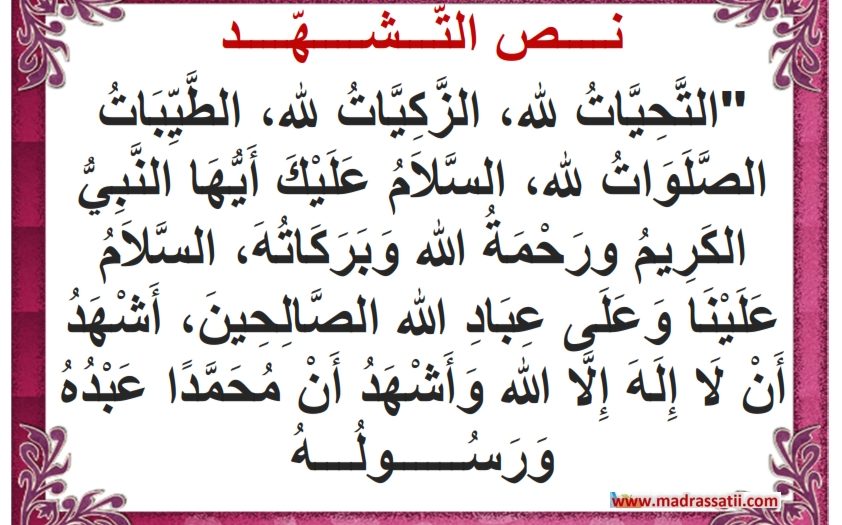 نـــص التّـــشـــــهّـــــد
"التَّحِيَّاتُ لله، الزَّكِيَّاتُ لله، الطَّيِّبَاتُ
الصَّلَوَاتُ لله، السَّلاَمُ عَلَيْكَ أَيُّهَا النَّبِيُّ
الكَرِيمُ ورَحْمَةُ الله وَبَرَكَاتُهَ، السَّلاَمُ
عَلَيْنَا وَعَلَى عِبَادِ الله الصَّالِحِينَ، أَشْهَدُ
أَنْ لَا إِلَهَ إِلَّا الله وَأَشْهَدُ أَنْ مُحَمَّدًا عَبْدُهُ
وَرَسُـــــولُـــهُ
www.madrassatii.com